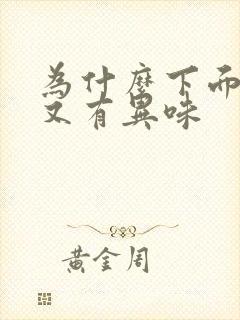 為什麼下面
又有異味
黃金周